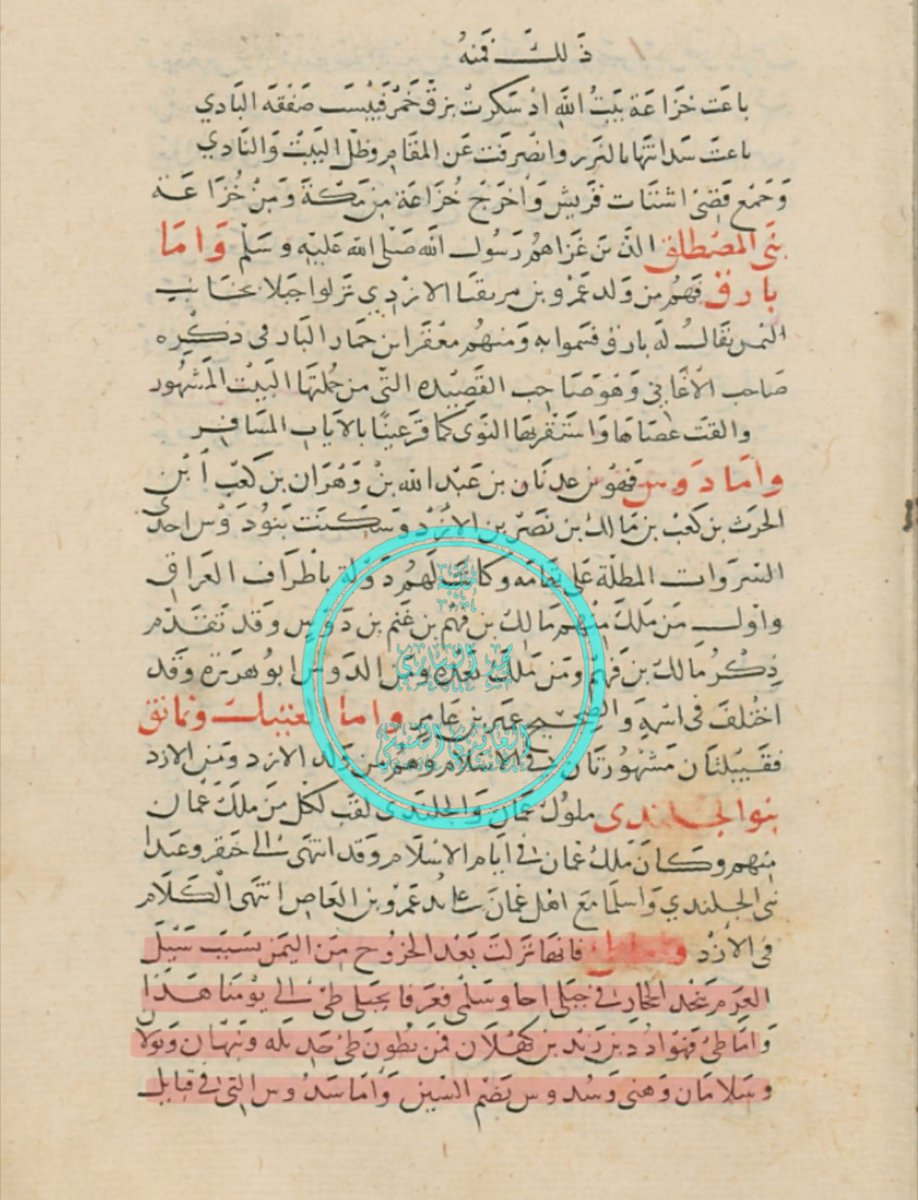 ذلك فمنه
باعت خزاعة بيت الله اذ سكرت بزق خمر فبيست صفقه البادي
باعت سدانتها بالنزر وانصرفت عن المقام وظل البيت والنادي
وجمع قصى اشتات قريش واخرج خزاعة من مكة ومن خزاعة
بنى المصطلق الذين غزاهم رسول الله صلى الله عليه وسلم واما
بارق فهم من ولد عمرو بن مزيقيا الازدي نزلوا جبلا بجانب
اليمن يقال له بارق فسموا به ومنهم معقر ابن حمار البارقى ذكره
صاحب الاغاني وهو صاحب القصيده التي من جملتها البيت المشهور
والقت عصاها واستقر بها النوى كما قر عينا بالاياب المسافر
واما دوس فهو بن عدنان بن عبد الله بن وهران بن كعب ابن
الحرث بن كعب بن مالك بن نصر بن الازد وسكنت بنو دوس احدى
السروات المطلة على تهامه وكانت لهم دولة باطراف العراق
واول من ملك منهم مالك بن فهم بن غنم بن دوس وقد تقدم
ذكر مالك بن فهم ومن ملك بعده ومن الدوس ابو هريرة وقد
اختلف فى اسمه والصحيح عمير بن عامر واما
فقبيلتان مشهورتان فى الاسلام وهم من ولد الازد ومن الازد
بنو الجلندى ملوك عمان والجلندى لقب لكل من ملك عمان
منهم وكان ملك عمان فى ايام الاسلام وقد انتهى الى وعبد
بنى الجلندي واسلما مع اهل عمان على يد عمرو بن العاص انتهى الكلام
فى الازد فانها نزلت بعد الخروج من اليمن بسبب سيل
العرم بنجد الحجاز فى جبلى اجا وسلمى فعرفا بجبلى طى الى يومنا هذا
واما طى فهو ادد بن زيد بن كهلان فمن بطون طى جديله ونبهان وبولان
وسلامان وهنى وسدوس بضم السين واما سدوس التى فى قبايل